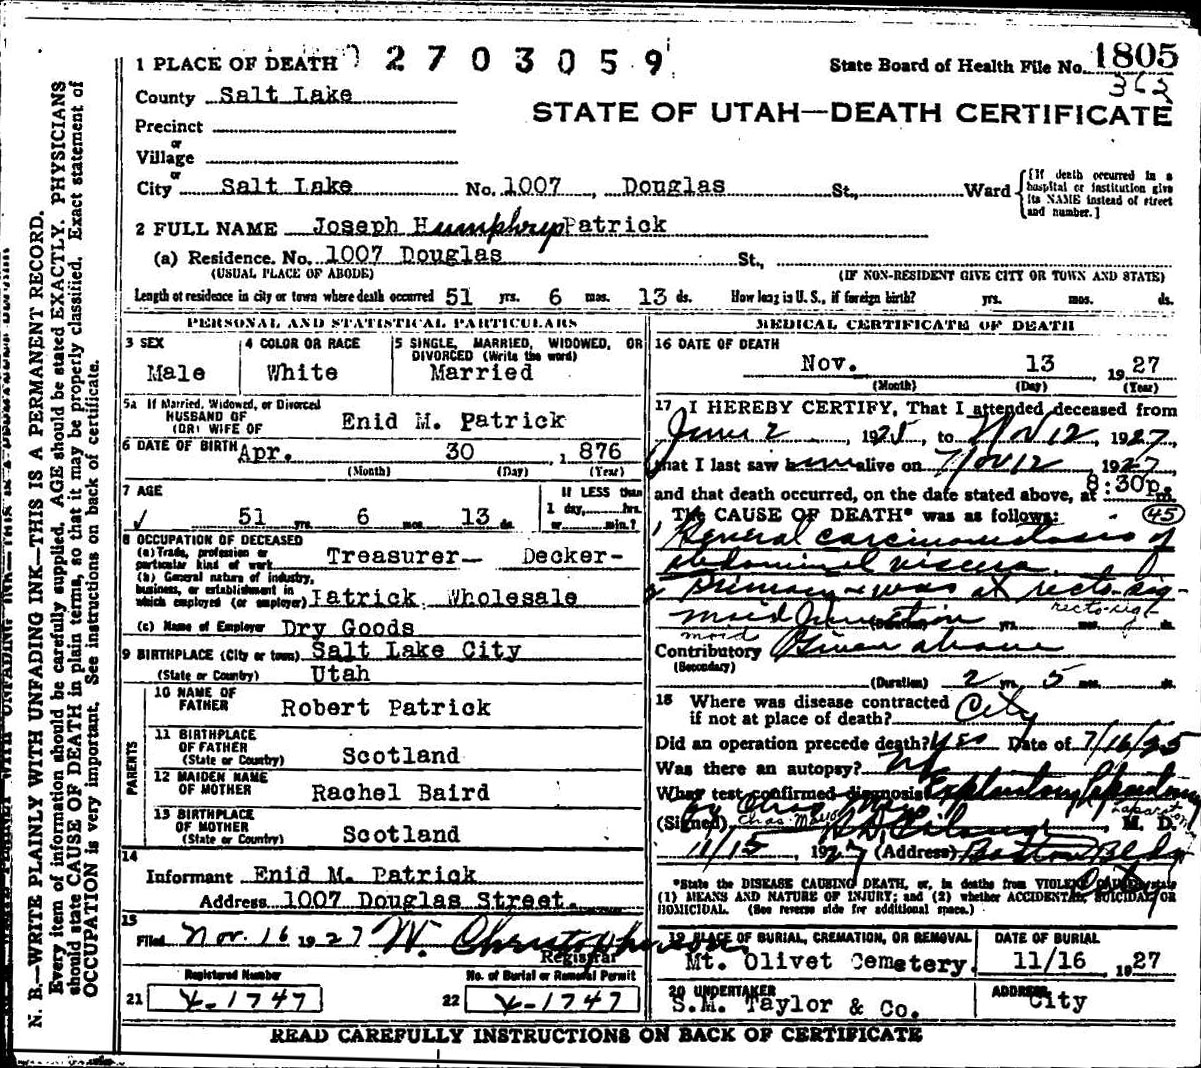 1 PLACE OF DEATH 2703059
State Board of Health File No. 1805
362
County Salt Lake
STATE OF UTAH—DEATH CERTIFICATE
Precinct
or
Village
or
City Salt Lake No. 1007, Douglas St., Ward
[If death occurred in a hospital or institution give its NAME instead of street and number.]
2 FULL NAME Joseph Humphrey Patrick
(a) Residence. No. 1007 Douglas St.,
(USUAL PLACE OF ABODE) (IF NON-RESIDENT GIVE CITY OR TOWN AND STATE)
Length of residence in city or town where death occurred 51 yrs. 6 mos. 13 ds. How long in U. S., if foreign birth? yrs. mos. ds.
PERSONAL AND STATISTICAL PARTICULARS
3 SEX
Male
4 COLOR OR RACE
White
5 SINGLE, MARRIED, WIDOWED, OR
DIVORCED (Write the word)
Married
5a If Married, Widowed, or Divorced
HUSBAND OF
(OR) WIFE OF Enid M. Patrick
6 DATE OF BIRTH Apr. 30, 1876
(Month) (Day) (Year)
7 AGE
51 yrs. 6 mos. 13 ds.
If LESS than
1 day, hrs.
or min.?
8 OCCUPATION OF DECEASED
(a) Trade, profession or
particular kind of work Treasurer— Decker-
(b) General nature of industry,
business, or establishment in
which employed (or employer) Patrick Wholesale
(c) Name of Employer Dry Goods
9 BIRTHPLACE (City or town) Salt Lake City
(State or Country) Utah
PARENTS
10 NAME OF
FATHER Robert Patrick
11 BIRTHPLACE
OF FATHER
(State or Country) Scotland
12 MAIDEN NAME
OF MOTHER Rachel Baird
13 BIRTHPLACE
OF MOTHER
(State or Country) Scotland
14
Informant Enid M. Patrick
Address 1007 Douglas Street.
15
Filed Nov. 16 1927 W. Christopherson
Registrar
Registered Number
21 X-1747
No. of Burial or Removal Permit
22 X-1747
MEDICAL CERTIFICATE OF DEATH
16 DATE OF DEATH
Nov. 13 1927
(Month) (Day) (Year)
17 I HEREBY CERTIFY, That I attended deceased from
June 2, 1925, to Nov 12, 1927,
that I last saw him alive on Nov 12, 1927,
and that death occurred, on the date stated above, at 8:30p. m.
The CAUSE OF DEATH* was as follows: 45
General carcinomatosis of
abdominal viscera
Primary was at recto-sig-
moid junction recto-sig
(Duration) yrs. ds.
moid
Contributory Given above
(Secondary)
(Duration) 2 yrs. 5 mos. ds.
18 Where was disease contracted
if not at place of death? City
Did an operation precede death? Yes Date of 7/16/25
Was there an autopsy? No
What test confirmed diagnosis? Exploratory Laparotomy
by Chas Mayo
Chas. Mayo Laparotom
(Signed), M. D.
11/15, 1927 (Address) Boston Bldg
City
*State the DISEASE CAUSING DEATH, or, in deaths from VIOLENT CAUSES, state
(1) MEANS AND NATURE OF INJURY; and (2) whether ACCIDENTAL, SUICIDAL, OR
HOMICIDAL. (See reverse side for additional space.)
19 PLACE OF BURIAL, CREMATION, OR REMOVAL
Mt. Olivet Cemetery.
DATE OF BURIAL
11/16, 1927
20 UNDERTAKER
S.M. Taylor & Co.
ADDRESS
City
READ CAREFULLY INSTRUCTIONS ON BACK OF CERTIFICATE
N. B.—WRITE PLAINLY WITH UNFADING INK—THIS IS A PERMANENT RECORD.
Every item of information should be carefully supplied. AGE should be stated EXACTLY. PHYSICIANS
should state CAUSE OF DEATH in plain terms, so that it may be properly classified. Exact statement of
OCCUPATION is very important. See instructions on back of certificate.